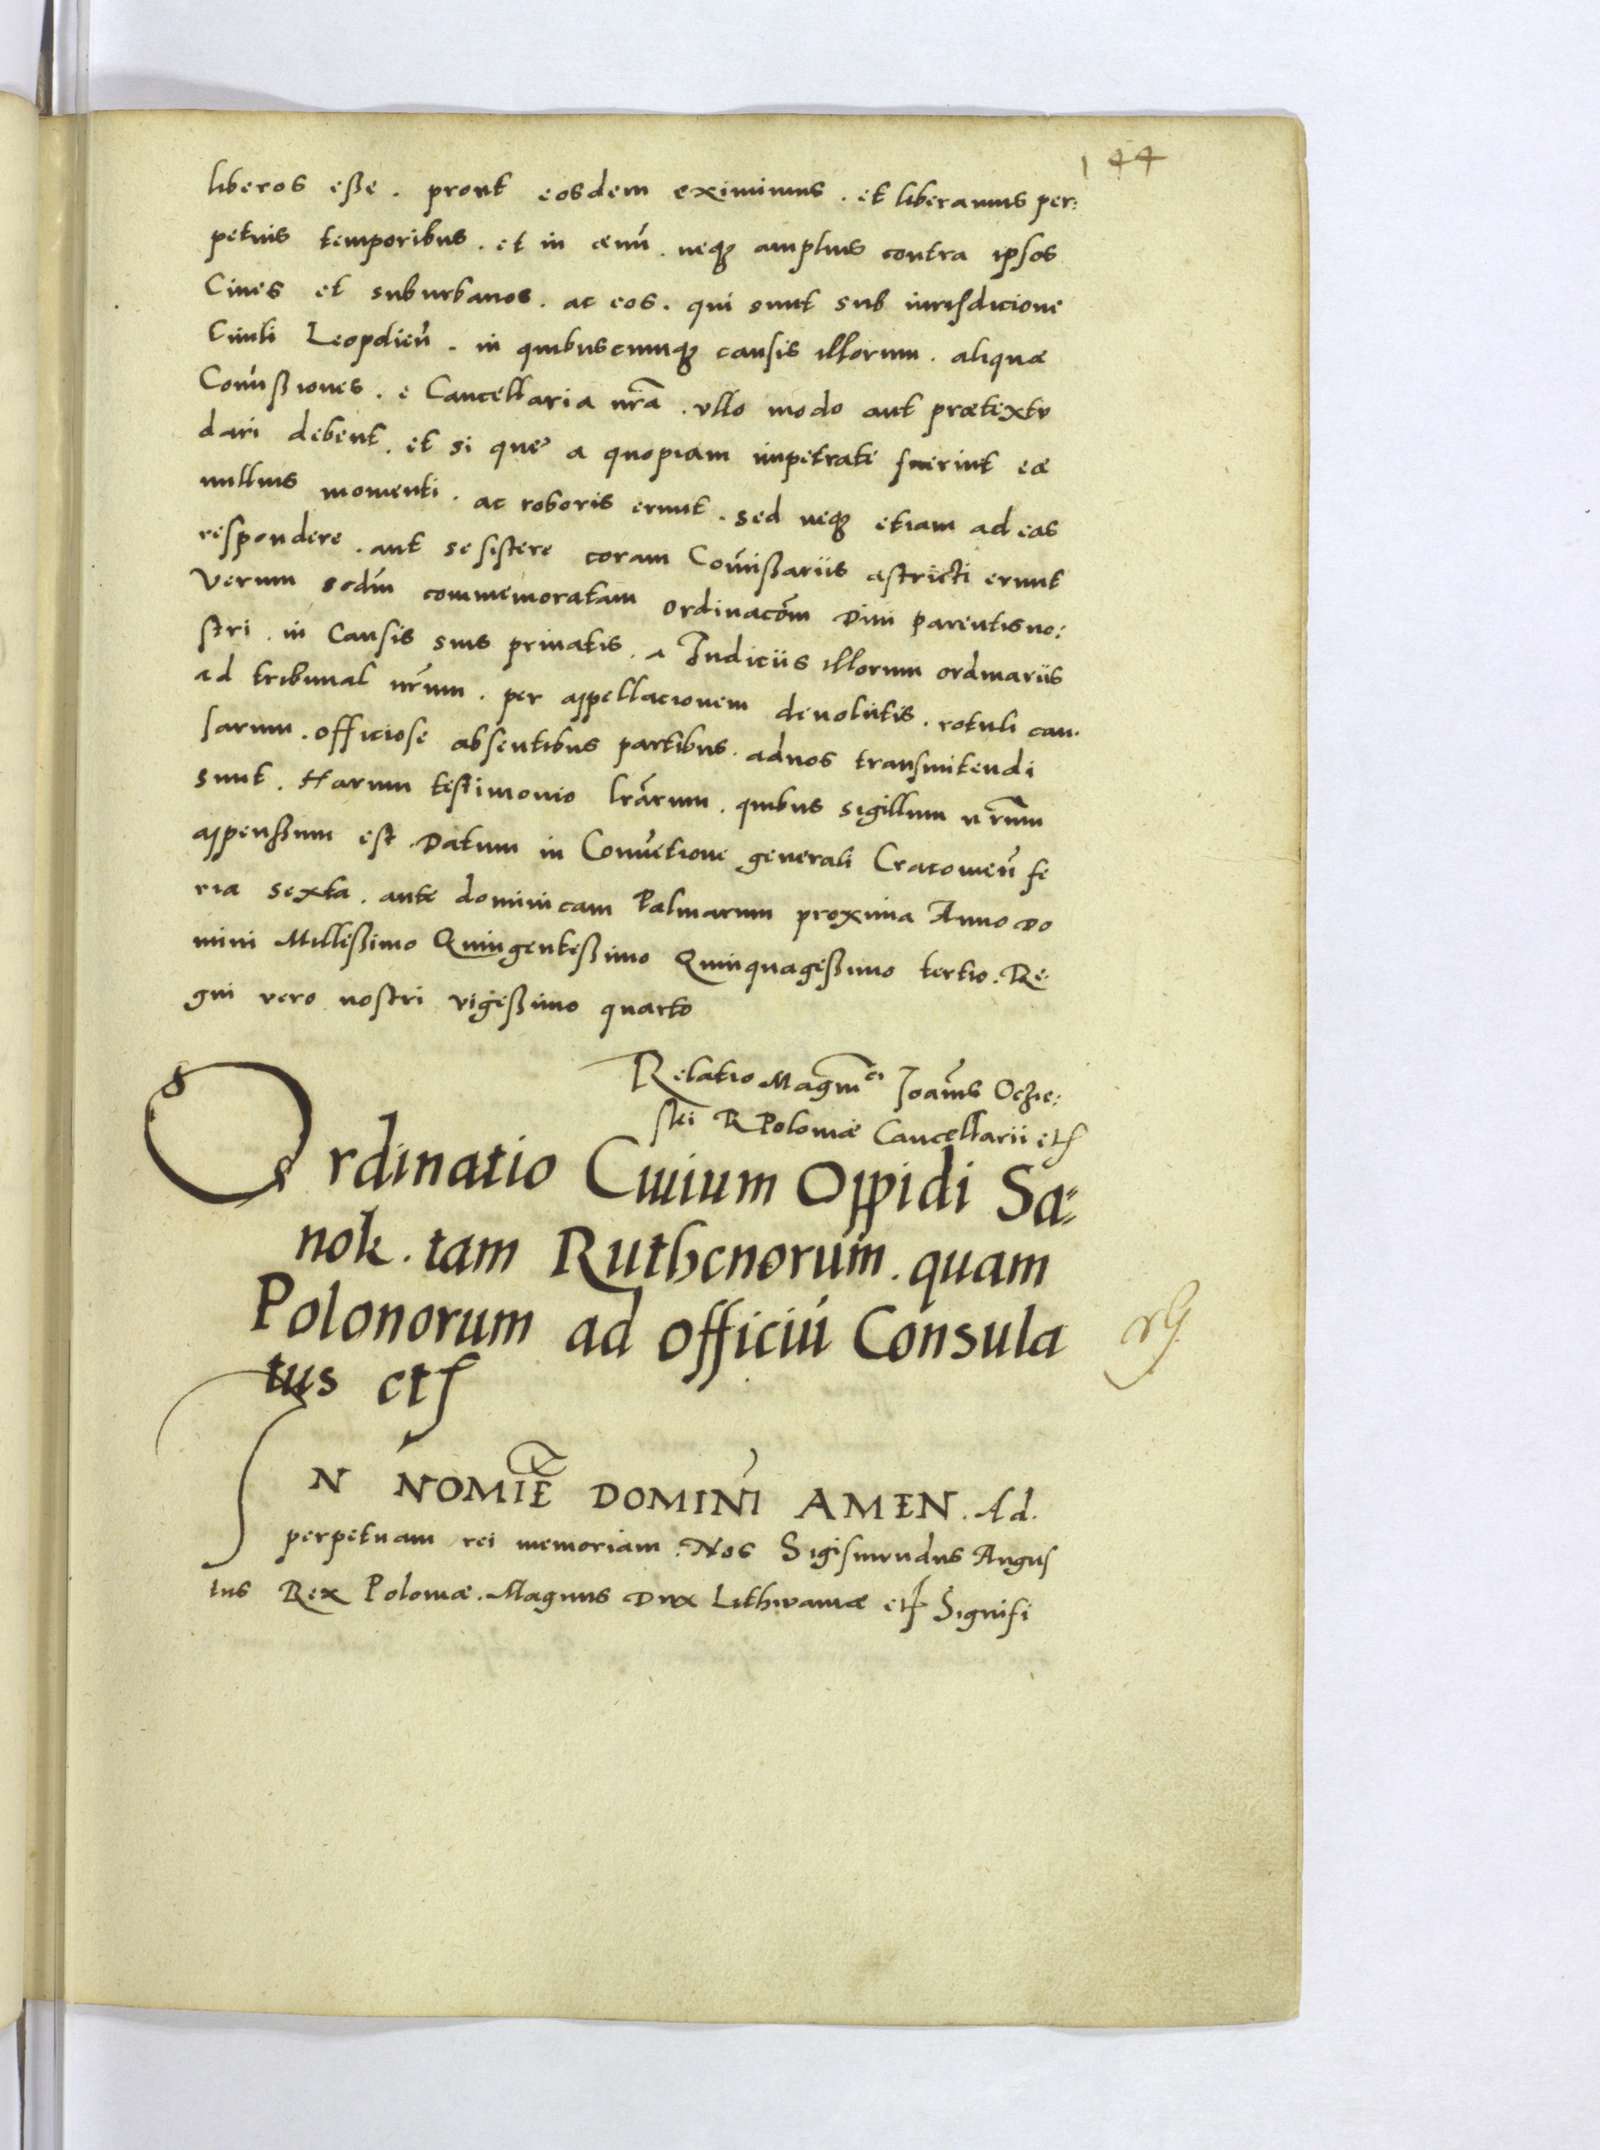 144
liberos eße . prout eosdem eximimus . et liberamus per:
petuis temporibus . et in æuũ . neqꝫ amplius contra ipsos
Ciues et suburbanos . ac eos . qui sunt sub iurisdicione
Ciuili Leopolieñ . in quibuscumqꝫ causis illorum . aliquæ
Com̃ißiones . e Cancellaria nr̃a . vllo modo aut prætextu
dari debent . et si quę a quopiam impetratę fuerint eæ
nullius momenti . ac roboris erunt . sed neqꝫ etiam ad eas
respondere . aut se sistere coram Com̃ißariis astricti erunt
Verum secdm̃ commemoratam ordinacõm Diui parentis no:
stri . in Causis suis priuatis . a Iudiciis illorum ordinariis
ad tribunal nr̃um . per appellacionem deuolutis . rotuli cau.
sarum . officiose absentibus partibus . ad nos transmitendi
sunt . Harum testimonio lr̃arum . quibus sigillum nr̃um
appenßum est . Datum in Conuẽtione generali Cracouieñ fe
ria sexta . ante dominicam Palmarum proxima Anno Do
mini Milleßimo Quingenteßimo Quinquageßimo tertio . Re:
gni vero nostri vigeßimo quarto
Relatio Magnici Joañis Oczie:
ski R Poloniæ Cancellarii etc
Ordinatio Ciuium Oppidi Sa=
nok . tam Ruthenorum . quam
Polonorum ad officiũ Consula
tus etc
IN NOMIE̅ DOMINI AMEN . Ad.
perpetuam rei memoriam . Nos Sigismundus Augus
tus Rex Poloniæ . Magnus Dux Lithvaniæ etc Signifi